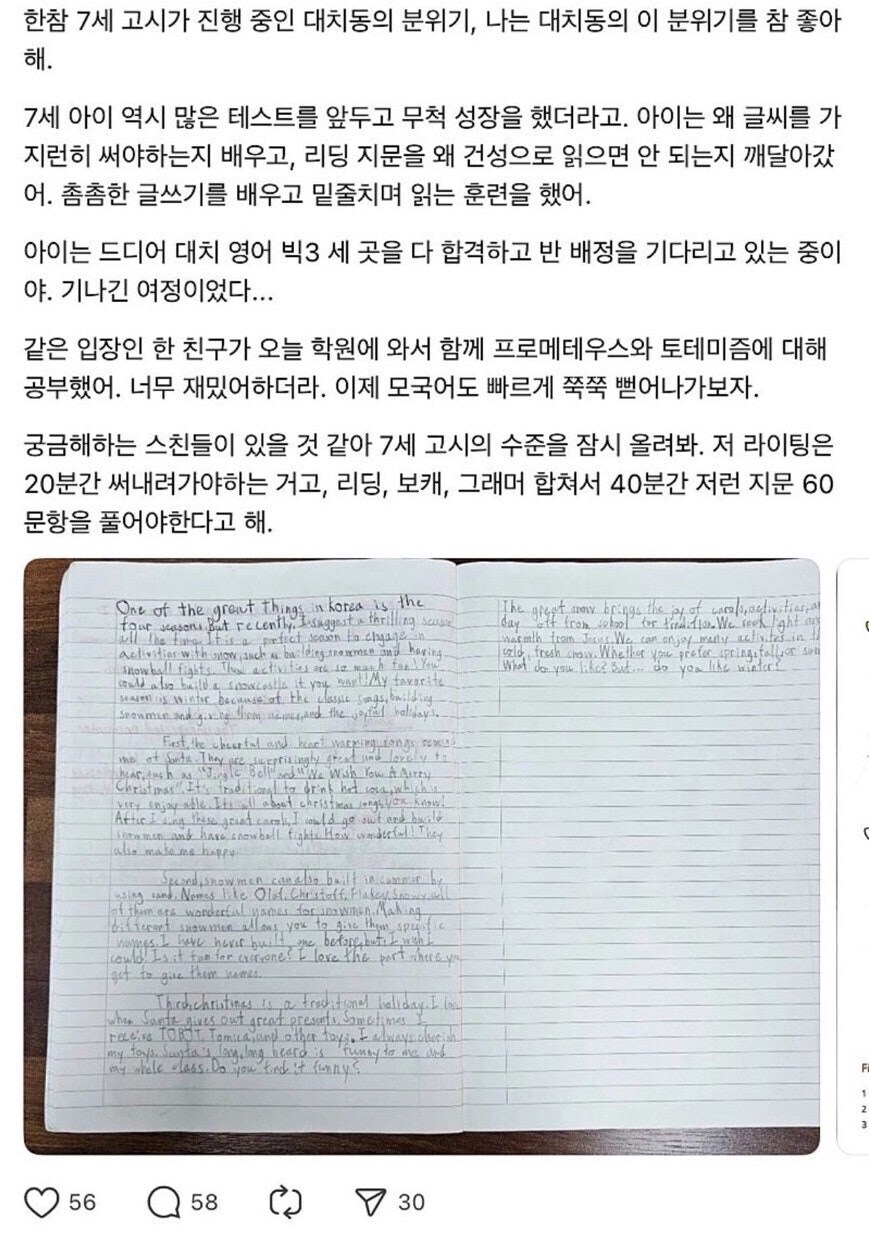 한참 7세 고시가 진행 중인 대치동의 분위기, 나는 대치동의 이 분위기를 참 좋아
해.
7세 아이 역시 많은 테스트를 앞두고 무척 성장을 했더라고. 아이는 왜 글씨를 가
지런히 써야하는지 배우고, 리딩 지문을 왜 건성으로 읽으면 안 되는지 깨달아갔
어. 촘촘한 글쓰기를 배우고 밑줄치며 읽는 훈련을 했어.
아이는 드디어 대치 영어 빅3 세 곳을 다 합격하고 반 배정을 기다리고 있는 중이
야. 기나긴 여정이었다...
같은 입장인 한 친구가 오늘 학원에 와서 함께 프로메테우스와 토테미즘에 대해
공부했어. 너무 재밌어하더라. 이제 모국어도 빠르게 쭉쭉 뻗어나가보자.
궁금해하는 스친들이 있을 것 같아 7세 고시의 수준을 잠시 올려봐. 저 라이팅은
20분간 써내려가야하는 거고, 리딩, 보캐, 그래머 합쳐서 40분간 저런 지문 60
문항을 풀어야한다고 해.
One of the great things in korea is the
four seasons. But recently, I suggest a thrilling season
all the time. It is a perfect season to engage in
activities with snow, such as building snowmen and having
snowball fights. These activities are so much fun! You
could also build a snowcastle if you want! My favorite
season is winter because of the classic songs, building
snowmen and giving them names, and the joyful holidays.
First, the cheerful and heart warming songs remind
me of Santa. They are surprisingly great and lovely to
hear, such as "Jingle Bell" and "We Wish You A Merry
Christmas". It's traditional to drink hot coca, which is
very enjoyable. It's all about christmas songs, you know!
After I sing these great carols, I could go out and build
snowmen and have snowball fights. How wonderful! They
also make me happy.
Second, snowmen can also built in summer by
using sand. Names like Olof, Christoff, Flakey, Snowy, all
of them are wonderful names for snowmen. Making
different snowmen allows you to give them specific
names. I have never built one before, but I wish I
could! Is it fun for everyone? I love the part where you
get to give them names.
Third, christmas is a traditional holiday. I love
when Santa gives out great presents. Sometimes I
receive TOBOT, Tomica, and other toys. I always cherish
my toys. Santa's long, long beard is funny to me and
my whole class. Do you find it funny?
The great snow brings the joy of carols, activities, an
day off from school for tradition. We seek light and
warmth from Jesus. We can enjoy many activities in
cold, fresh snow. Whether you prefer spring, fall, or sum
What do you like? But... do you like winter?
56
58
30
Fi
1
2
3